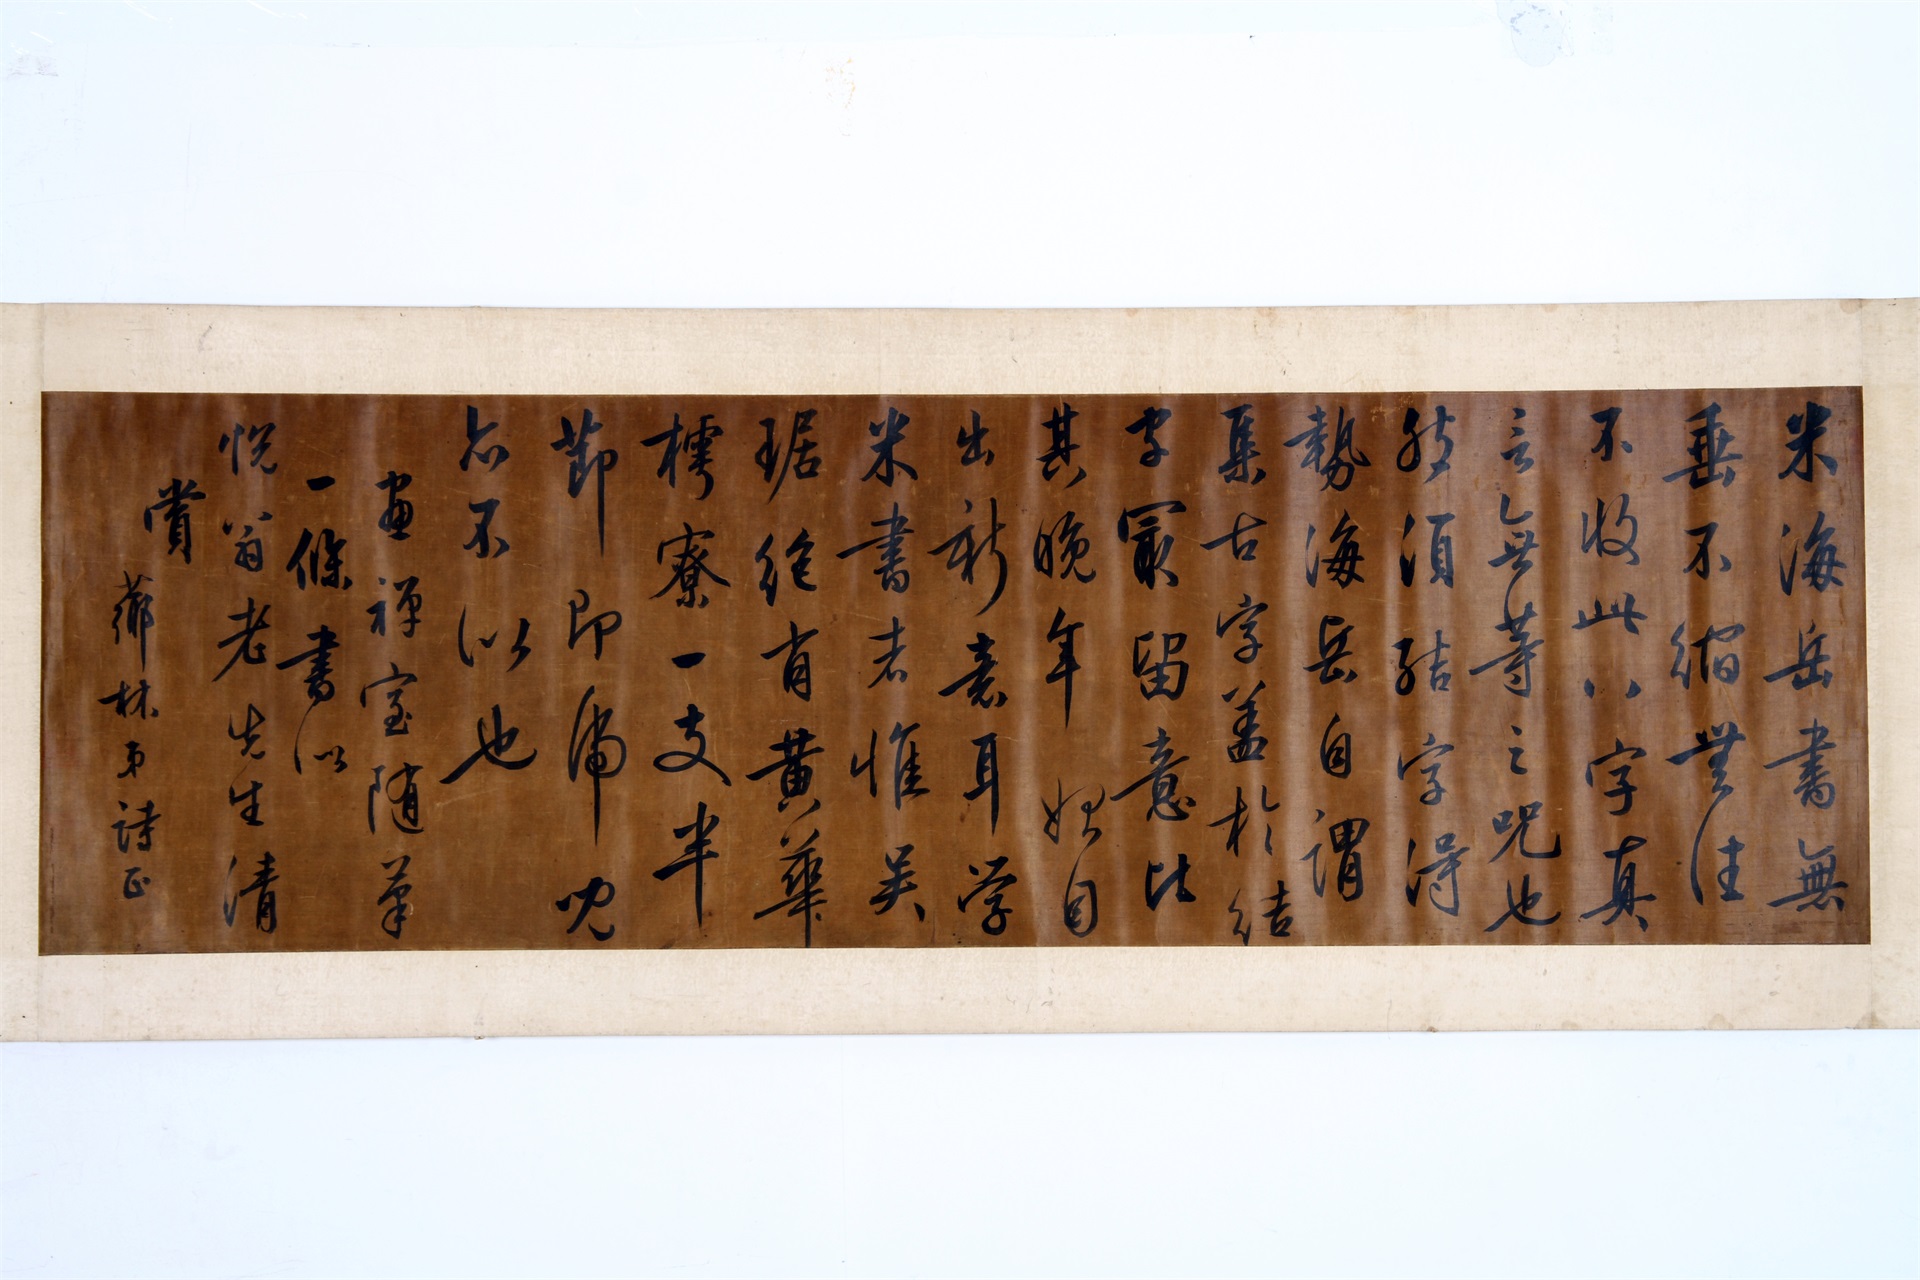 米海岳書無
垂不縮無往
不收此八字真
言無等之咒也
然須結字得
勢海岳自謂
集古字蓋於結
字最留意比
其晚年始自
出新意耳学
米書者惟吳
琚絕肖黃華
樗寮一支半
節即虎兒
亦不似也
畫禪室隨筆
一條書似
悅翁老先生清
賞
薌林弟詩正